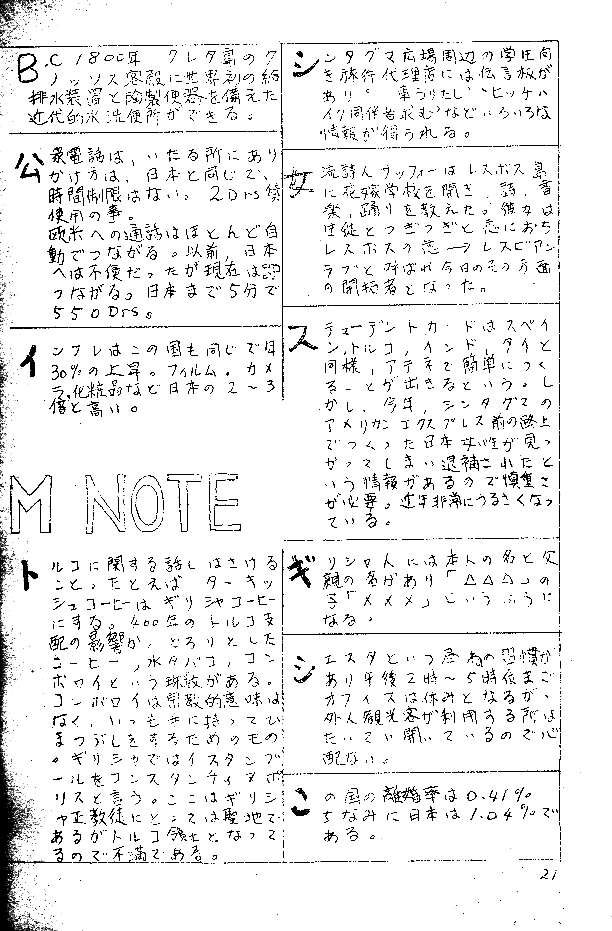 B.C 1800年 クレタ島のク
ノッソス宮殿に世界初の給
排水装置と陶製便器を備えた
近代的水洗便所ができる。
公衆電話は、いたる所にあり
かけ方は、日本と同じで、
時間制限はない。2Drs
使用の事。
欧米への通話はほとんど自
動でつながる。以前、日本
へは不便だったが現在は
つながる。日本まで5分で
550Drs。
インフレはこの国も同じで年
30%の上昇。フィルム、カメ
ラ、化粧品など日本の2〜3
倍と高い。
M NOTE
トルコに関する話しはさける
こと。たとえば ターキッ
シュコーヒーはギリシャコーヒー
にする。400年のトルコ支
配の影響か、とろりとした
コーヒー、水タバコ、コン
ボロイという珠数がある。
コンボロイは宗教的意味は
なく、いつも手に持ってひ
まつぶしをするためのもの
。ギリシャではイスタンブ
ールをコンスタンティノポ
リスと言う。ここはギリシ
ャ正教徒にとっては聖地で
あるがトルコ領土となって
るので不満である。
シンタグマ広場周辺の学生向
き旅行代理店には伝言板が
あり、車うりたし、ヒッチハ
イク同伴者求む などいろいろな
情報が得られる。
女流詩人サッフォーはレスボス島
に花嫁学校を開き、詩、音
楽、踊りを教えた。彼女は
生徒とつぎつぎと恋におち
レスボスの恋=レスビアン
ラブと呼ばれ今日のその方面
の開拓者となった。
スチューデントカードはスペイ
ン、トルコ、インド、タイと
同様、アテネで簡単につく
ることが出きるという。し
かし、今年、シンタグマの
アメリカンエクスプレス前の路上
でつくった日本女性が見つ
かってしまい逮捕されたと
いう情報があるので慎重さ
が必要。近年非常にうるさくなっ
ている。
ギリシャ人には本人の名と父
親の名があり「△△△」の
子「×××」というふうに
なる。
シエスタという昼ねの習慣が
あり午後2時〜5時位まで
オフィスは休みとなるが、
外人観光客が利用する所は
たいてい開いているので心
配ない。
この国の離婚率は0.41%
ちなみに日本は1.04%で
ある。
21